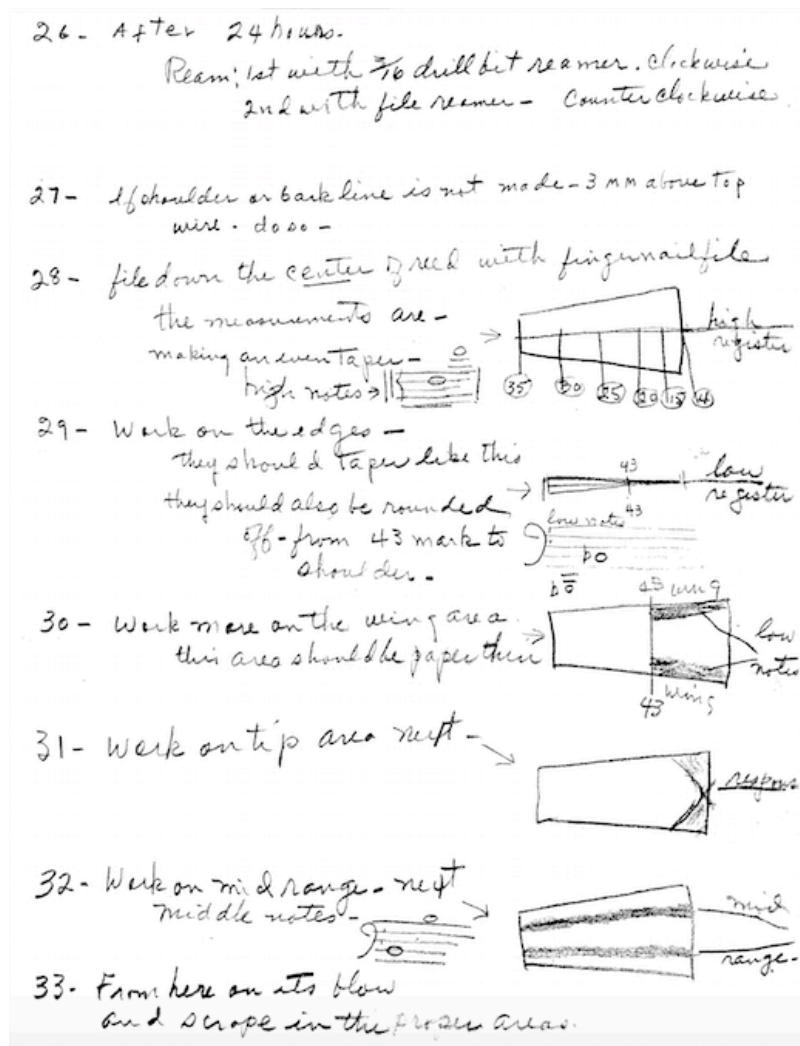 26- After 24 hours.
Ream: 1st with 3/16 drill bit reamer. Clockwise
2nd with file reamer- Counter clockwise.
27- If shoulder or back line is not made-3 MM above Top
wire. do so-
28- file down the center of reed with fingernail file
the measurements are-
making an even Taper-
high notes→
high
register
35 30 25 20 15
29- Work on the edges-
they should Taper like this
they should also be rounded
off-from 43 mark to
shoulder.
43
low
register
43
low notes
30- Work more on the wing area.
this area should be paper thin
wing
low
notes
43
wing
31- Work on tip area next-
respons
32- Work on mid range- next
middle notes-
mid
range-
33- From here on its blow
and scrape in the proper areas.